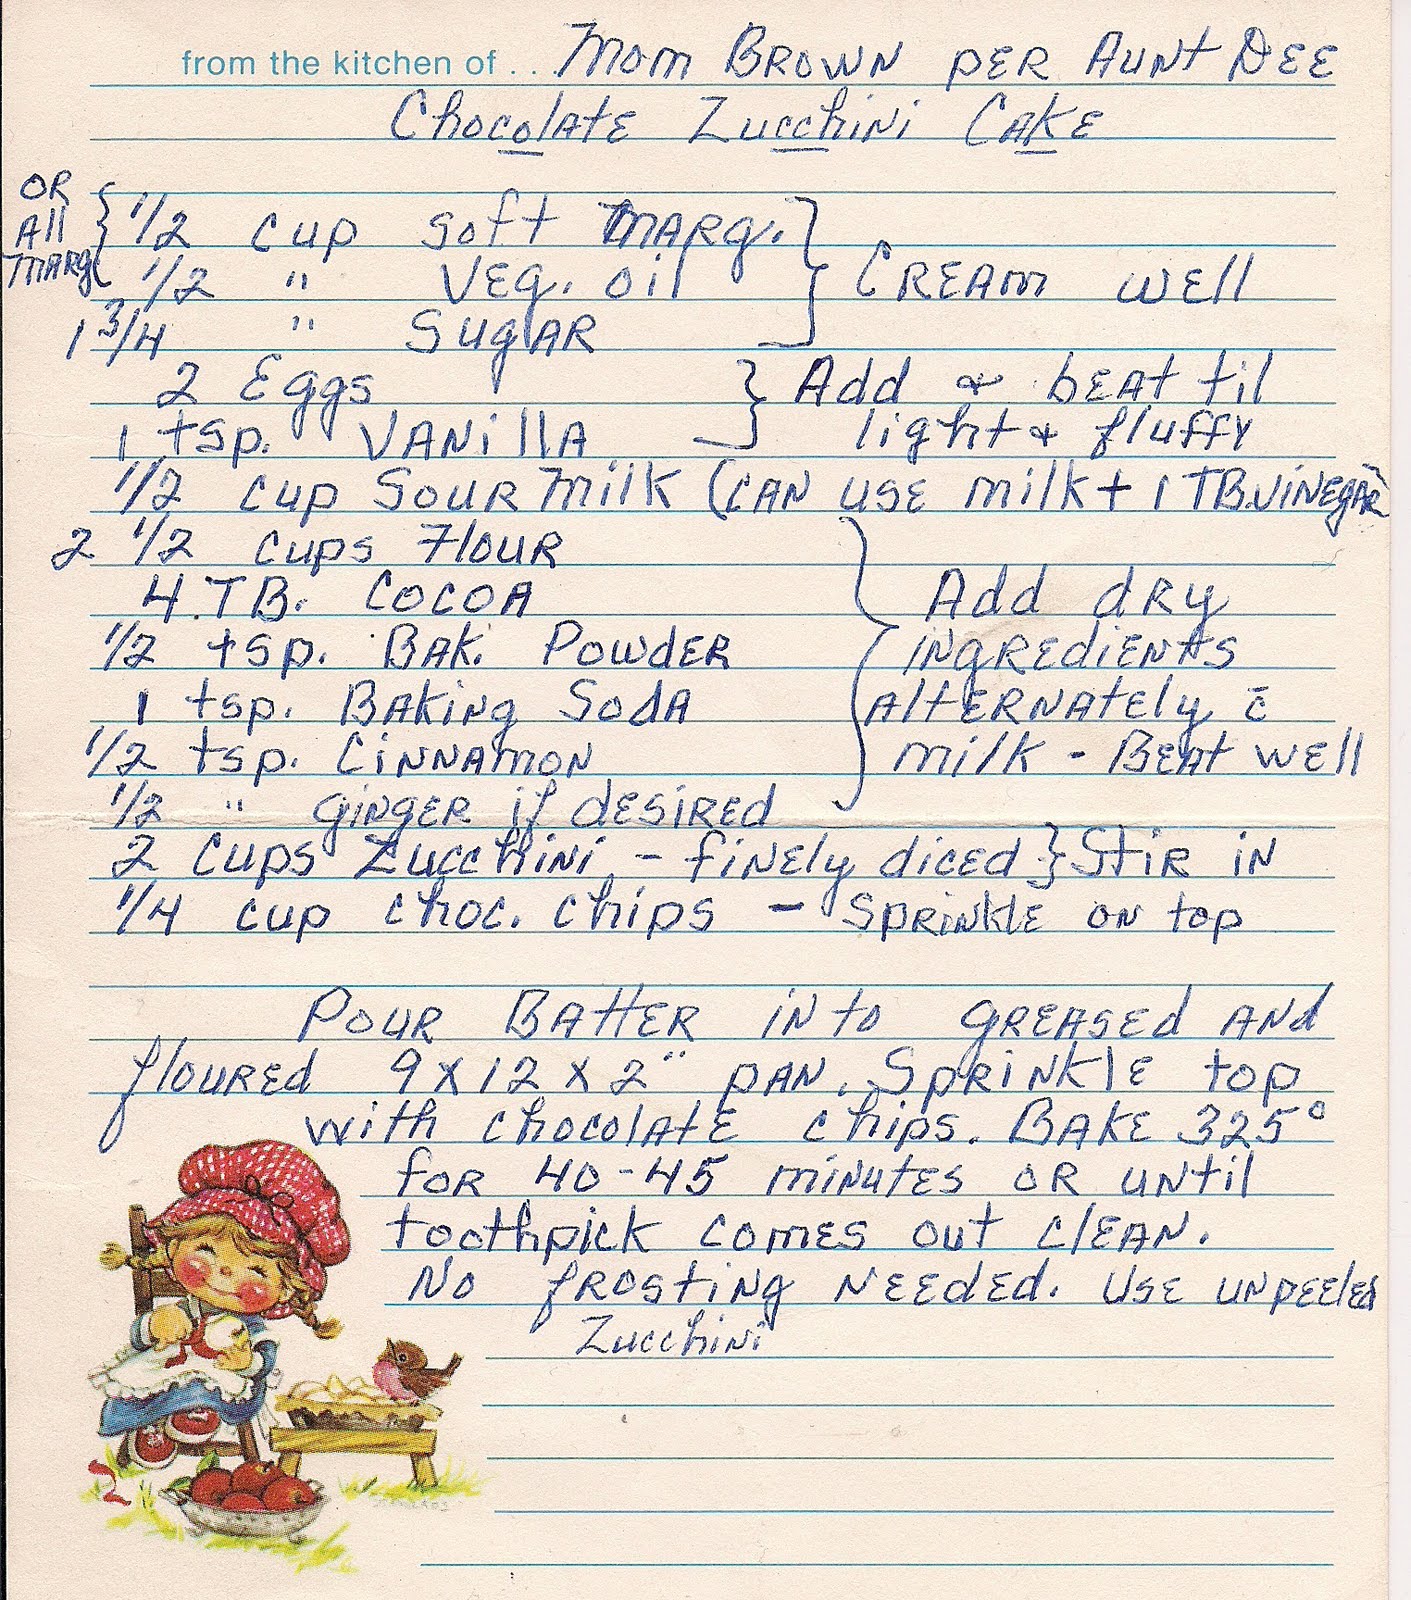 from the kitchen of . . . Mom Brown per Aunt Dee
Chocolate Zucchini Cake
OR
All
Marg
1/2 cup soft Marg.
1/2 " Veg. oil
1 3/4 " Sugar
Cream well
2 Eggs
1 tsp. Vanilla
Add & beat til
light & fluffy
1/2 cup Sour Milk (can use milk + 1 TB. vinegar
2 1/2 cups Flour
4 TB. Cocoa
1/2 tsp. Bak. Powder
1 tsp. Baking Soda
1/2 tsp. Cinnamon
1/2 " ginger if desired
Add dry
ingredients
alternately c̄
milk - Beat well
2 cups Zucchini - finely diced } Stir in
1/4 cup choc. chips - Sprinkle on top
Pour Batter into greased and
floured 9 x 12 x 2" pan. Sprinkle top
with chocolate chips. Bake 325°
for 40-45 minutes or until
toothpick comes out clean.
No frosting needed. Use unpeeled
Zucchini